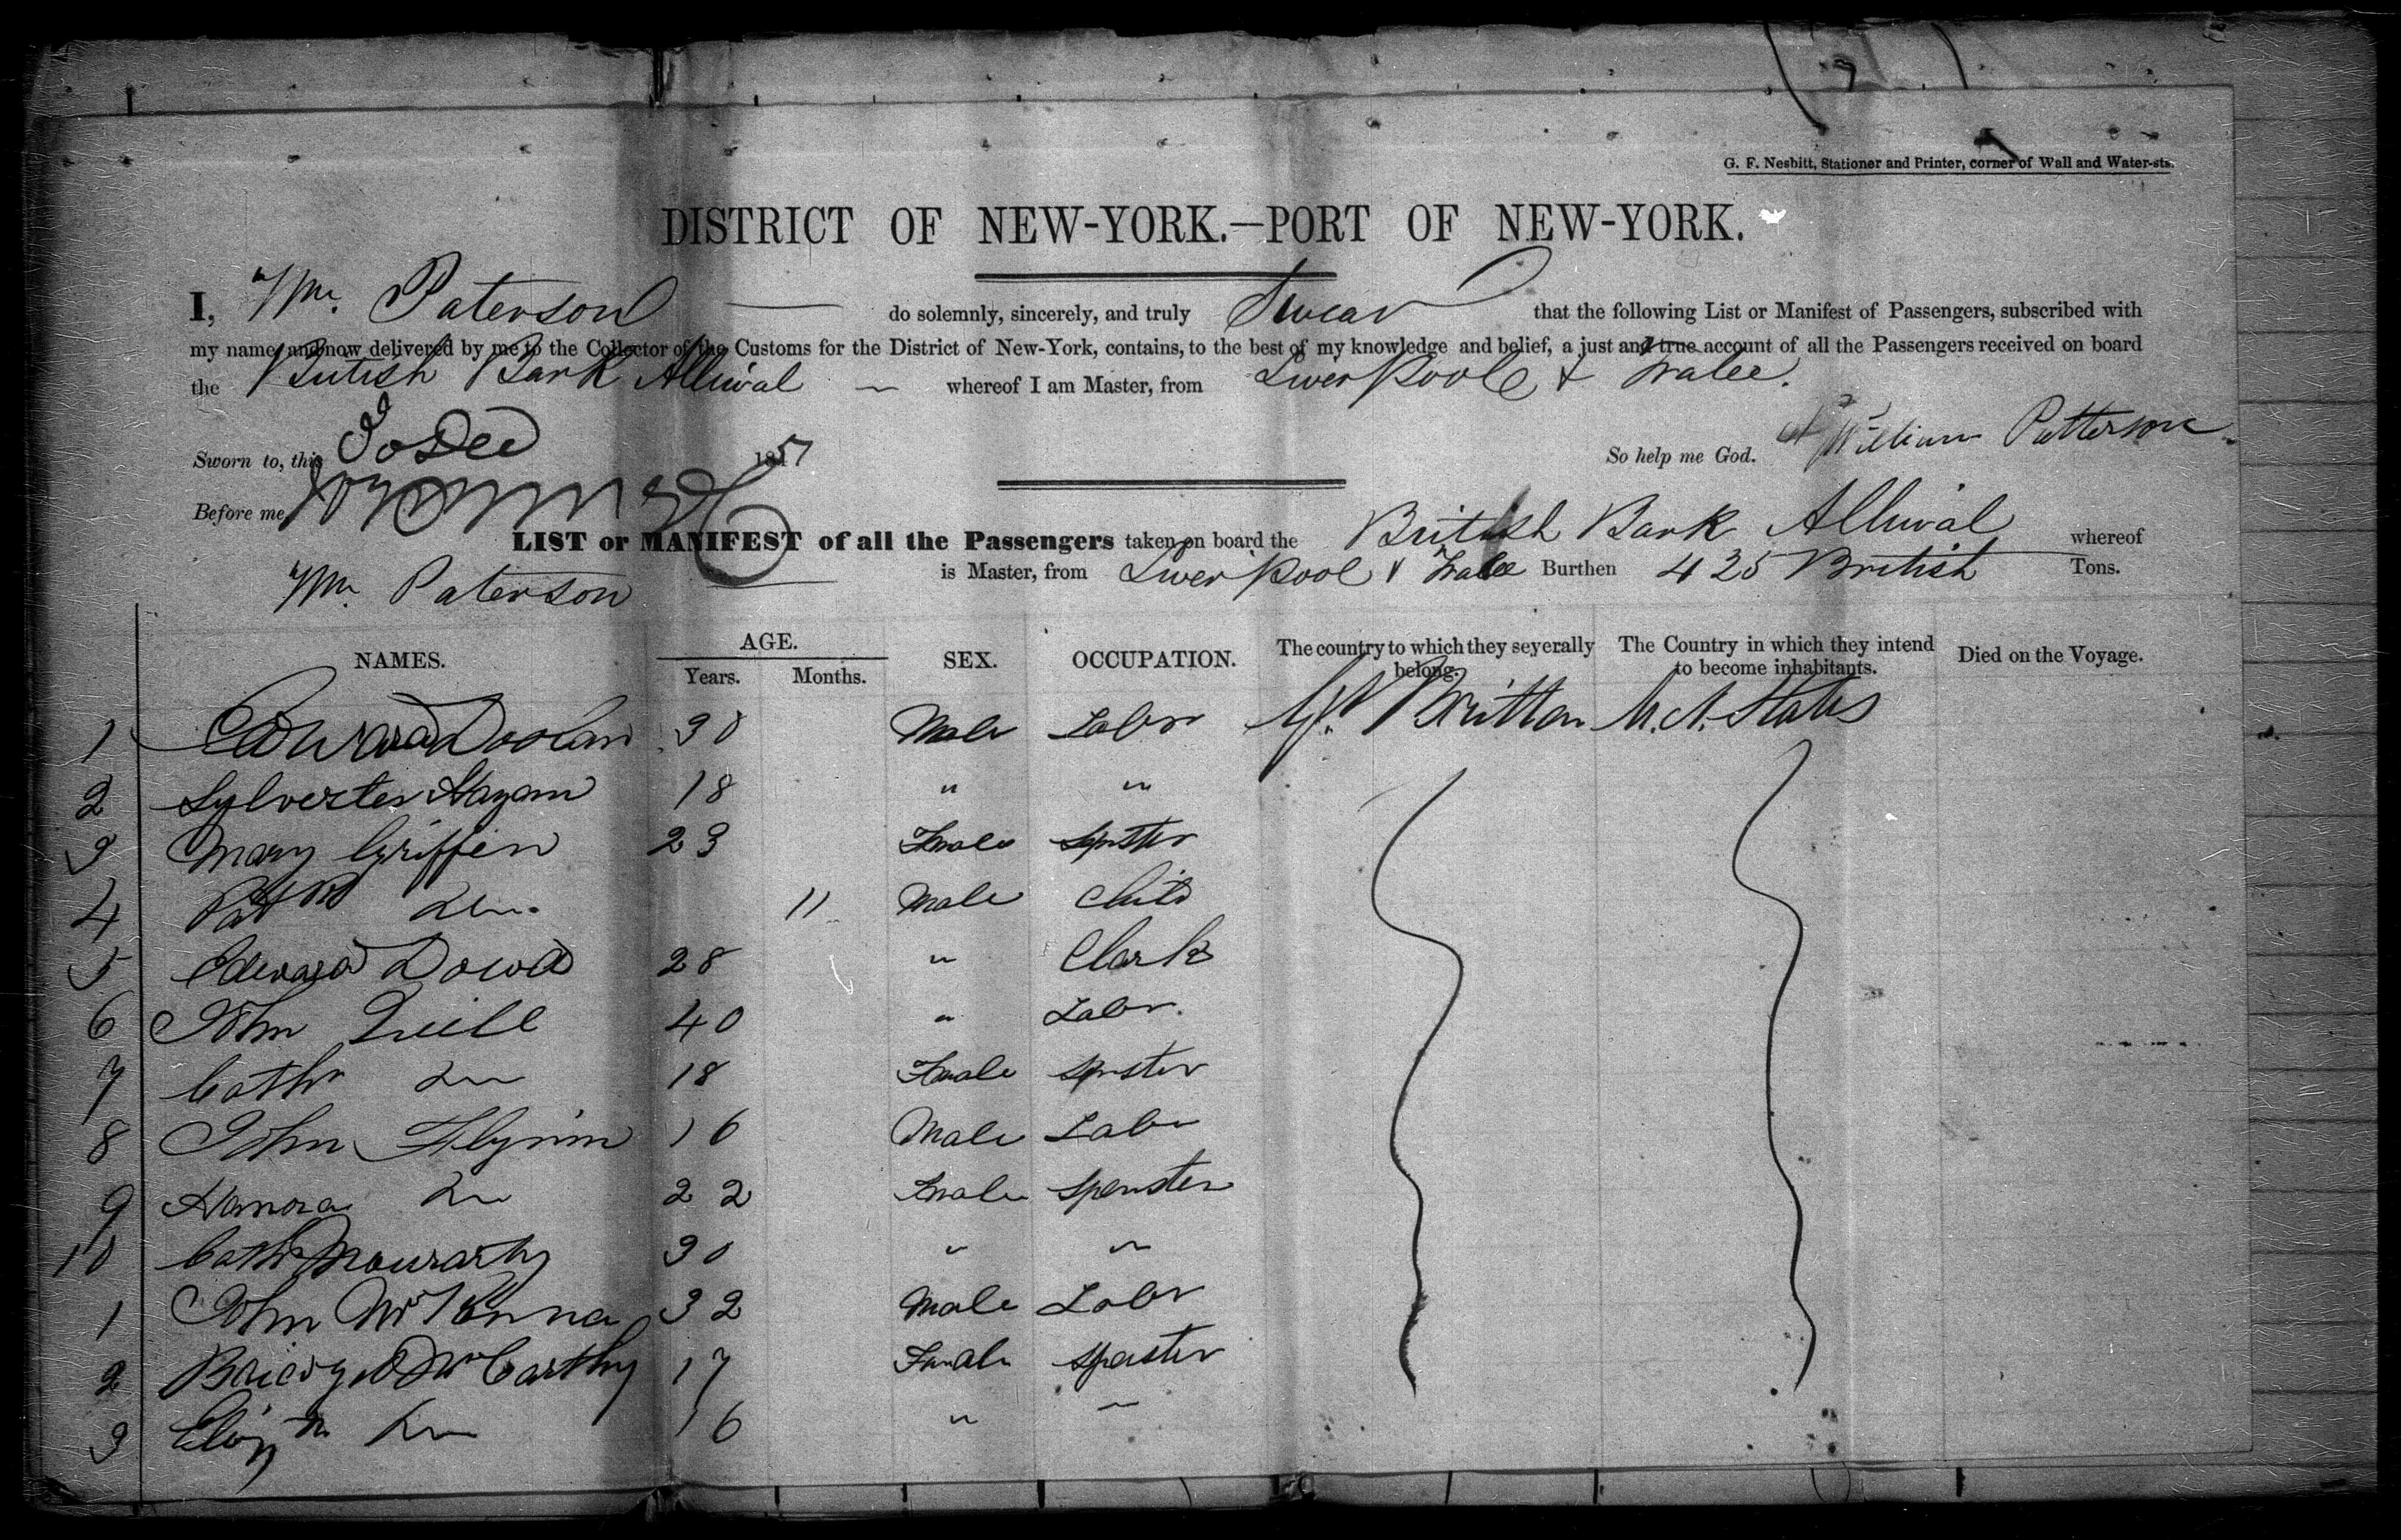 G. F. Nesbitt, Stationer and Printer, corner of Wall and Water-sts.
DISTRICT OF NEW-YORK.—PORT OF NEW-YORK.
I, Wm. Paterson do solemnly, sincerely, and truly Swear that the following List or Manifest of Passengers, subscribed with
my name, and now delivered by me to the Collector of the Customs for the District of New-York, contains, to the best of my knowledge and belief, a just and true account of all the Passengers received on board
the British Bark Alliwal whereof I am Master, from Liverpool & Tralee.
Sworn to, this 185
So help me God. William Patterson
Before me,
LIST or MANIFEST of all the Passengers taken on board the British Bark Alliwal whereof
Wm. Paterson is Master, from Liverpool & Tralee Burthen 425 British Tons.
NAMES. AGE. Years. Months. SEX. OCCUPATION. The country to which they severally belong. The Country in which they intend to become inhabitants. Died on the Voyage.
1 Edward Doolan 30 Male Labr Gt. Britton U. States
2 Sylvester 18 " "
3 Mary Griffen 23 Female Spster
4 Patk Do. 11 Male Child
5 Edward Dowd 28 " Clark
6 John Quill 40 " Labr.
7 Cathn Do 18 Female Spnster
8 John Flynn 16 Male Labr
9 Hanora Do 22 Female Spenster
10 Cath 30 " "
1 John McKenna 32 Male Labr
2 McCarthy 17 Female Spenster
3 Elizth Do 16 " "